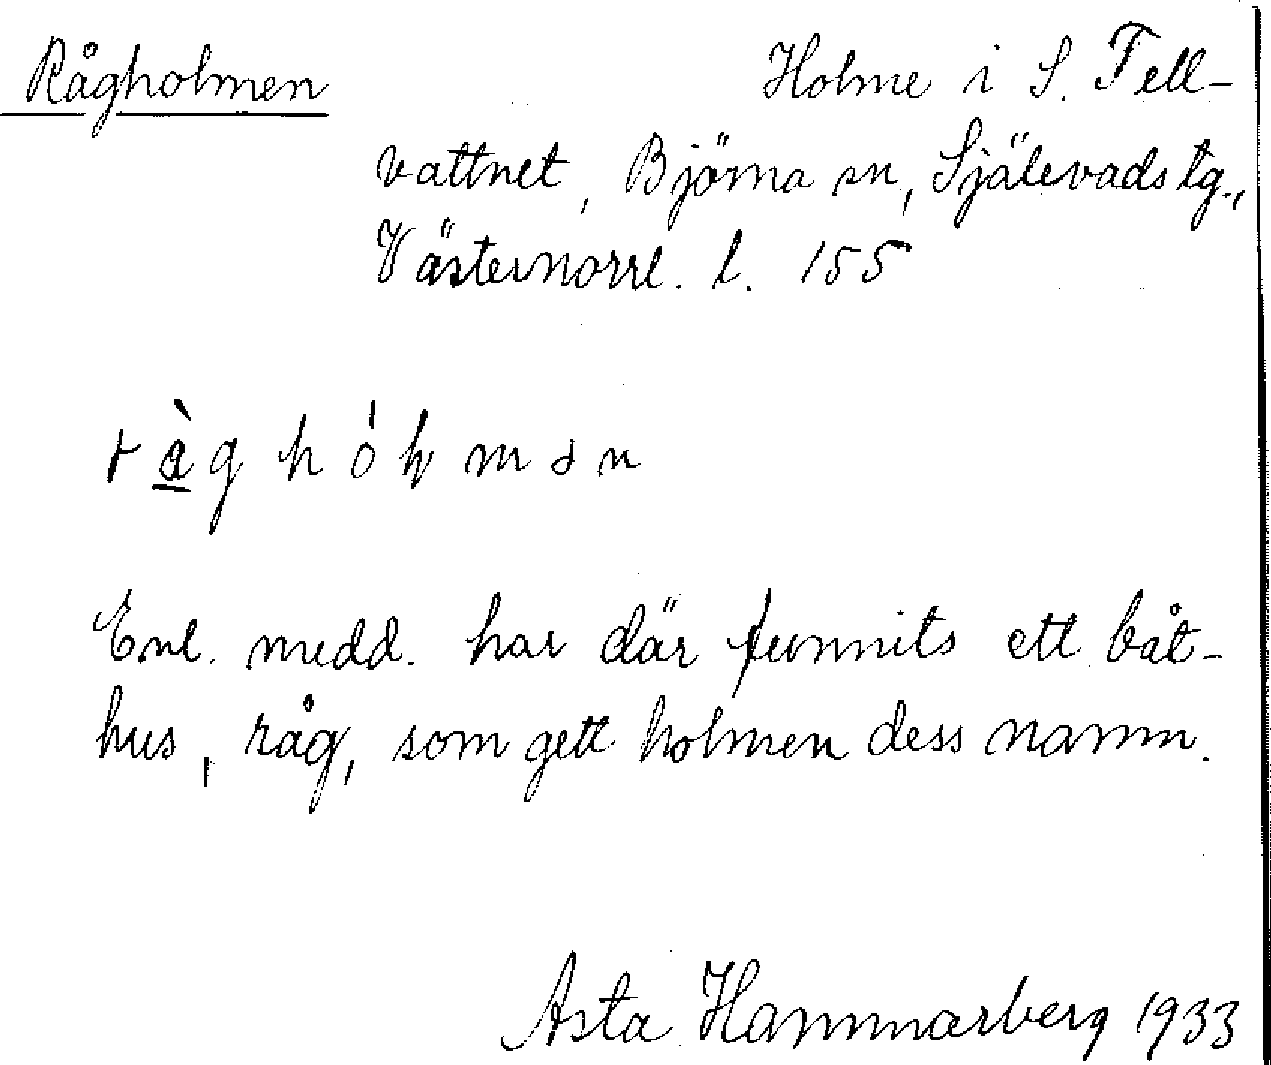 Rågholmen Holme i S. Fell-
vattnet, Björna sn, Själevads tg.,
Västernorrl. l. 155
Enl. medd. har där funnits ett båt-
hus, råg, som gett holmen dess namn.
Asta Hammarberg 1933